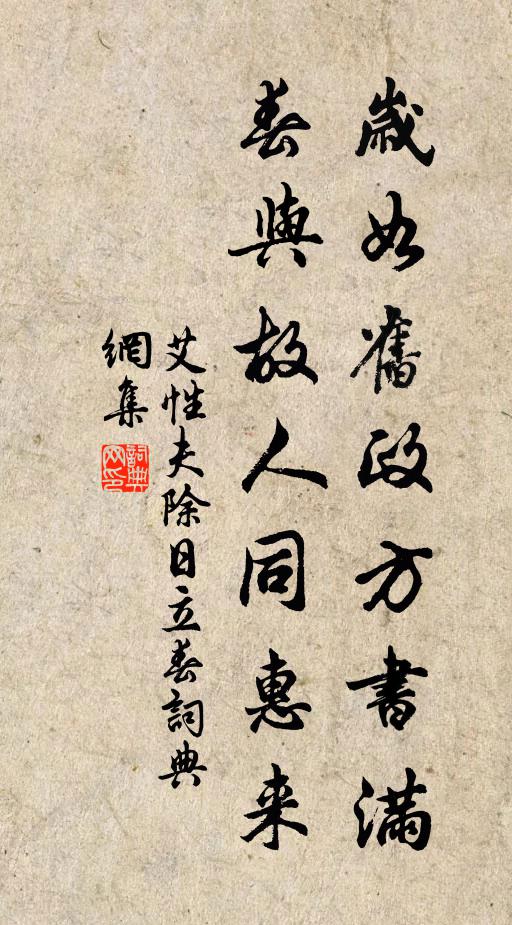 歲如舊政方書滿
春與故人同惠来
艾性夫除日立春詞典
網集
詞典網印